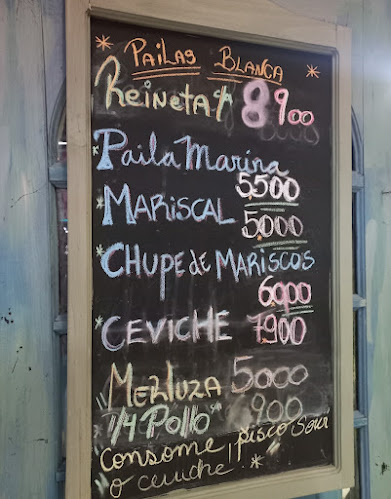 Pailas Blanca
Reineta 8900
Paila Marina
5,500
Mariscal 5000
Chupe de Mariscos
6.000
Ceviche 7900
Merluza 5000
1/4 Pollo 900
Consome, pisco sour
o ceviche!